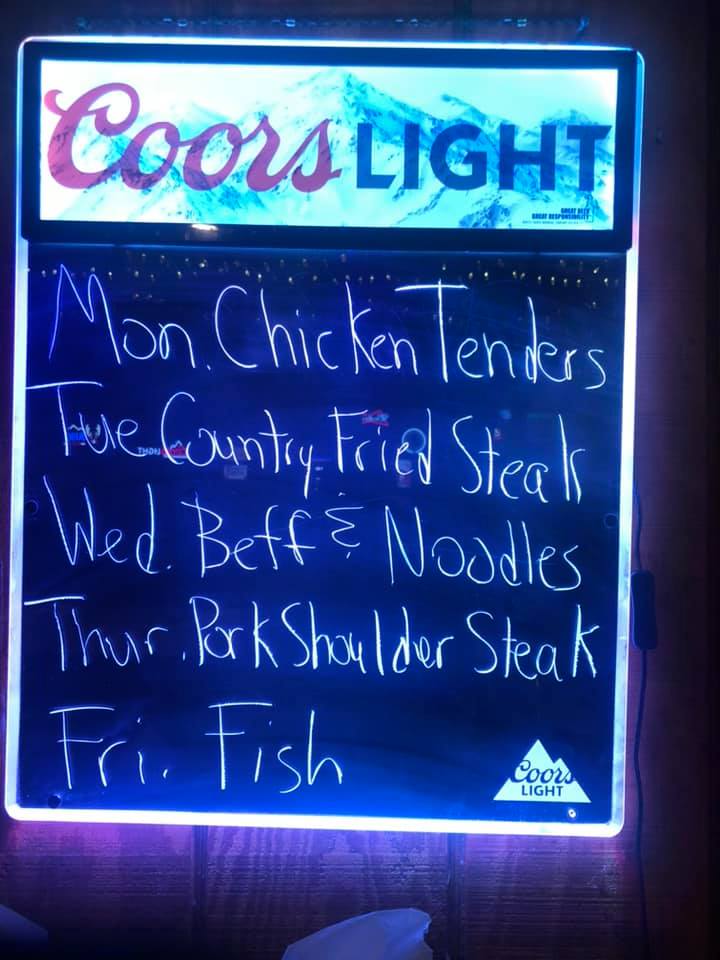 Coors LIGHT
GREAT BEER
GREAT RESPONSIBILITY
Mon. Chicken Tenders
Tue Country Fried Steak
Wed. Beff & Noodles
Thur. Pork Shoulder Steak
Fri. Fish
Coors
LIGHT